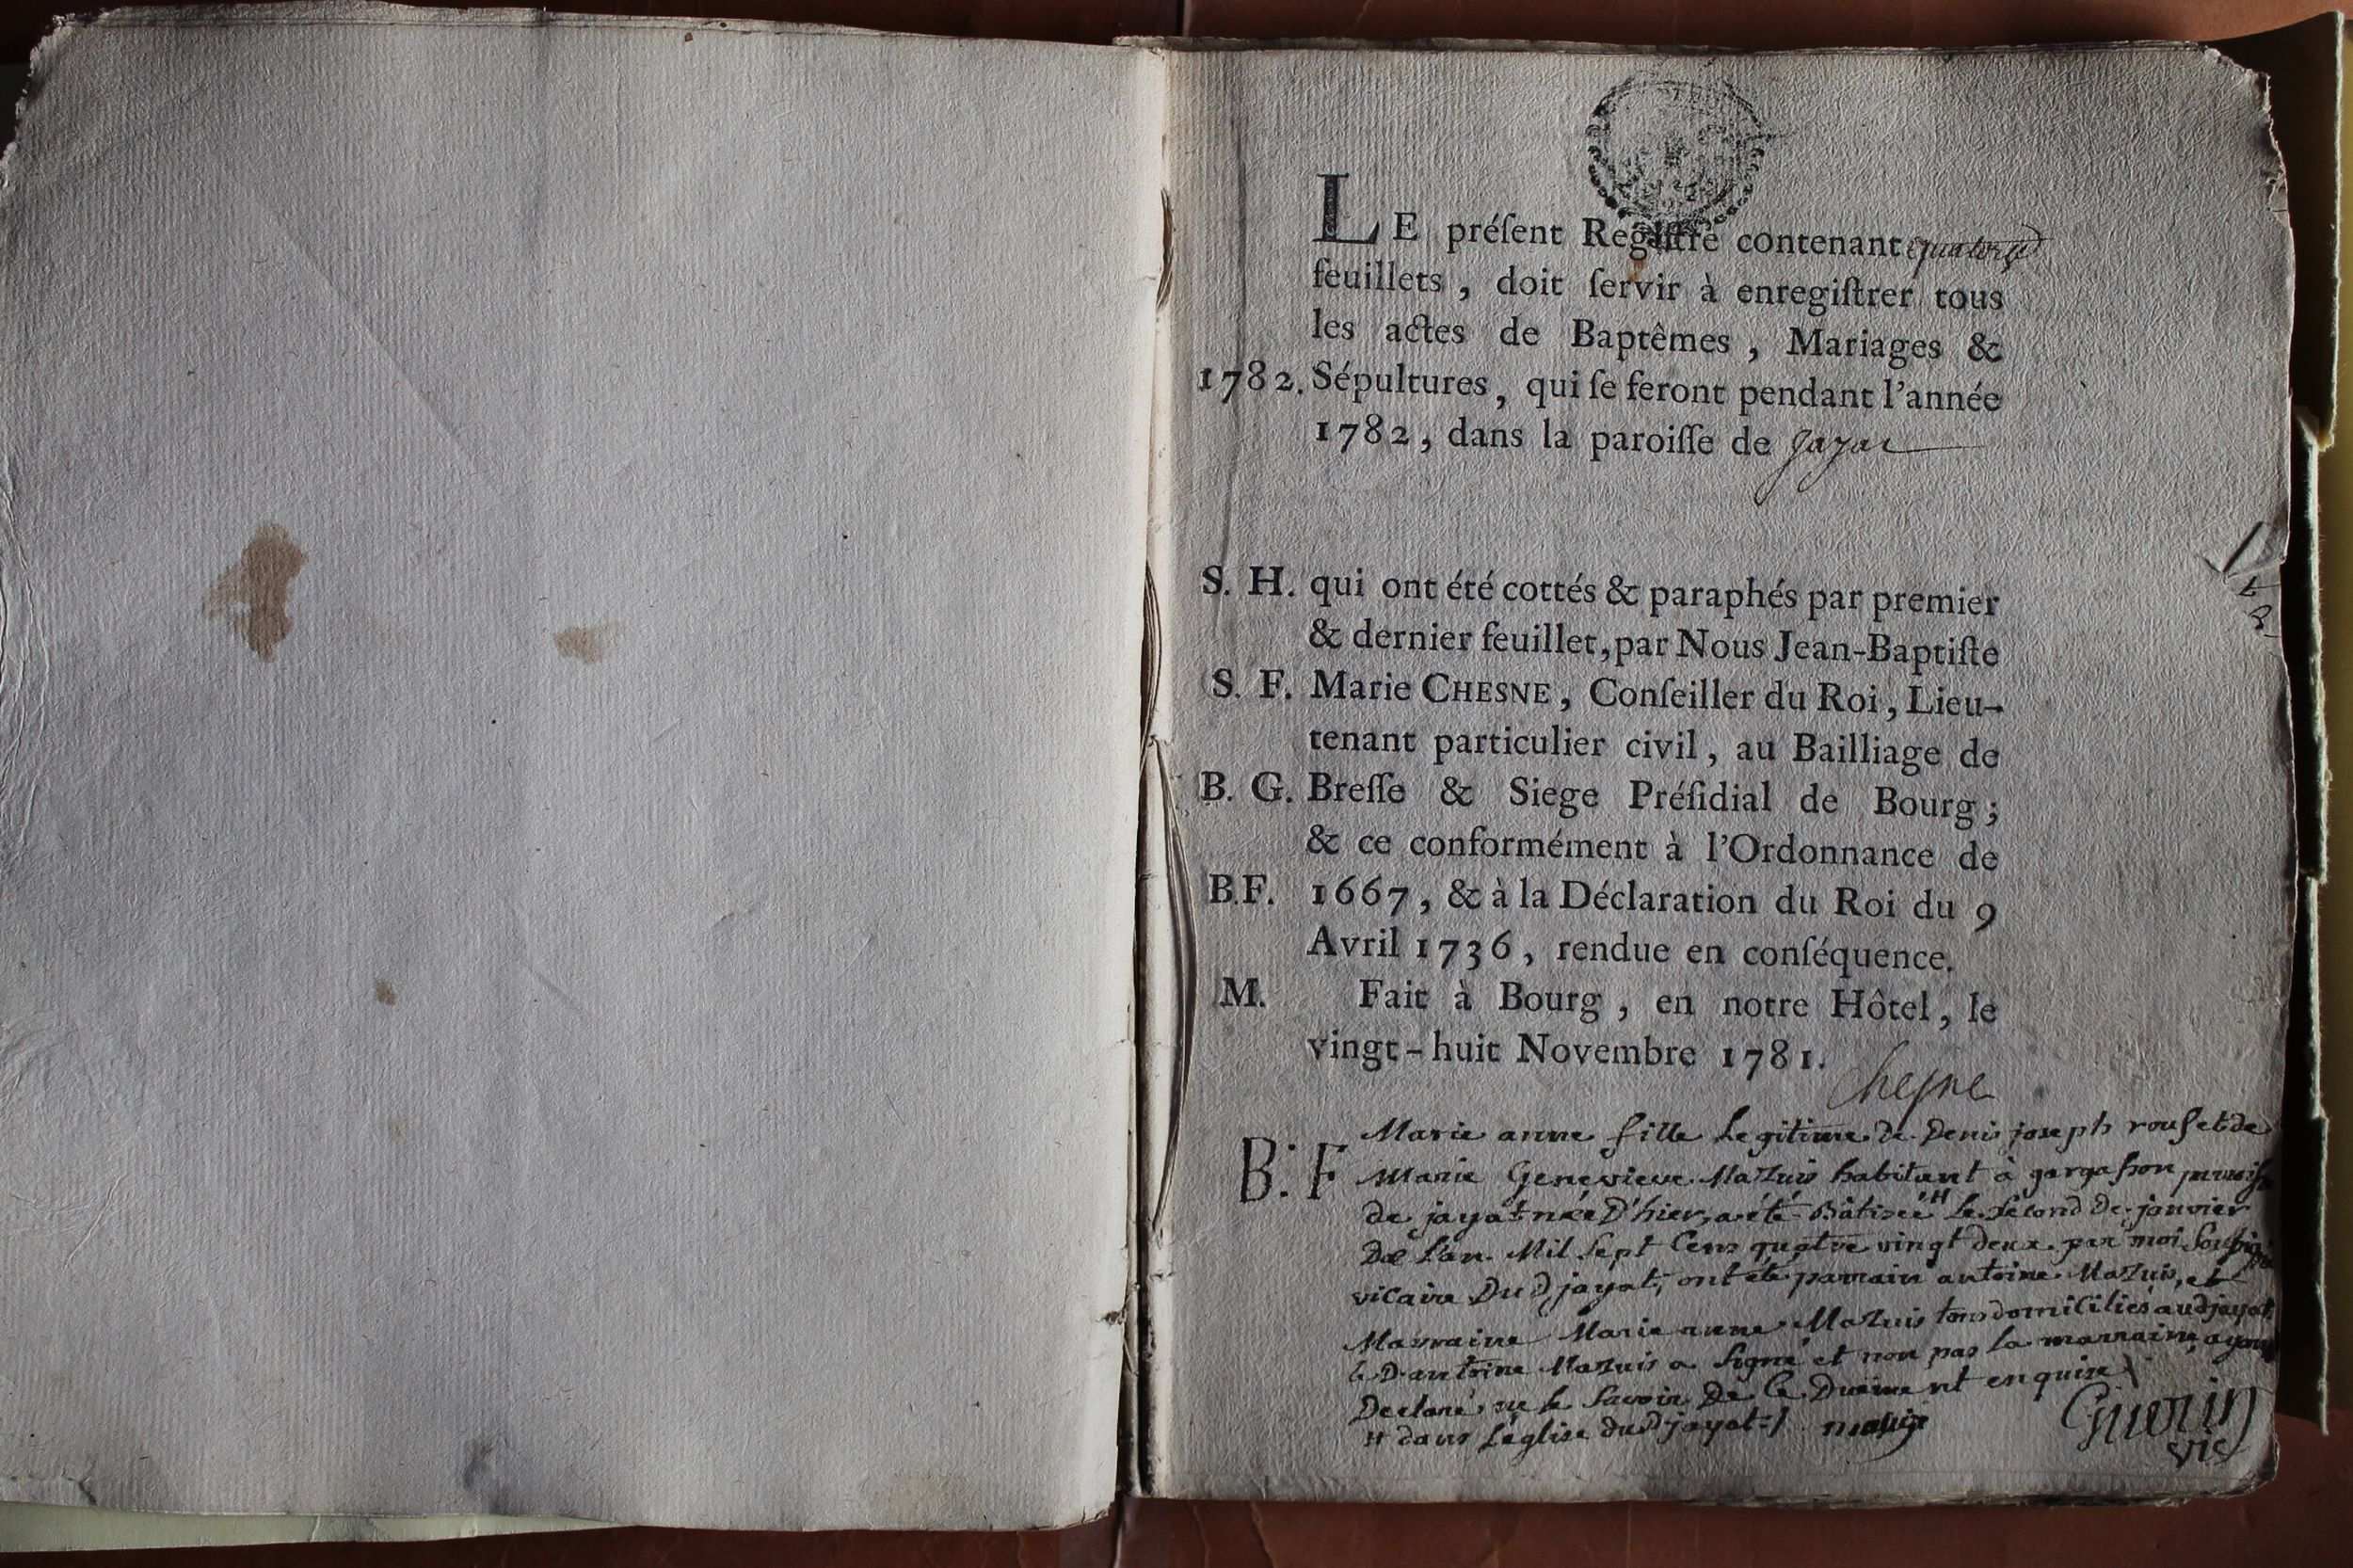 LE préſent Regiſtre contenant quatorze
feuillets, doit ſervir à enregiſtrer tous
les actes de Baptêmes, Mariages &
1782. Sépultures, qui ſe feront pendant l'année
1782, dans la paroiſſe de Jayat
S. H. qui ont été cottés & paraphés par premier
& dernier feuillet, par Nous Jean-Baptiſte
S. F. Marie CHESNE, Conſeiller du Roi, Lieu-
tenant particulier civil, au Bailliage de
B. G. Breſſe & Siege Préſidial de Bourg;
& ce conformément à l'Ordonnance de
B.F. 1667, & à la Déclaration du Roi du 9
Avril 1736, rendue en conſéquence.
M. Fait à Bourg, en notre Hôtel, le
vingt-huit Novembre 1781.
Chesne
B. F Marie anne fille Legitime de Denis joseph rouset de
Marie Genevieve Mazuis habitant à
de jayat née D'hier, a été Bâtisée # Le second De janvier
De L'an Mil Sept Cens quatre vingt deux par moi
vicaire Dud jayat, ont été parrain antoine Mazuis, et
Marraine Marie anne Mazuis tous domiciliés aud jayat
le D. antoine Mazuis a signé et non pas la marraine, ayant
Declaré ne le savoir De Ce Duëment enquise
# dans L'église dud jayat =/ mazuis
Guerin
vic